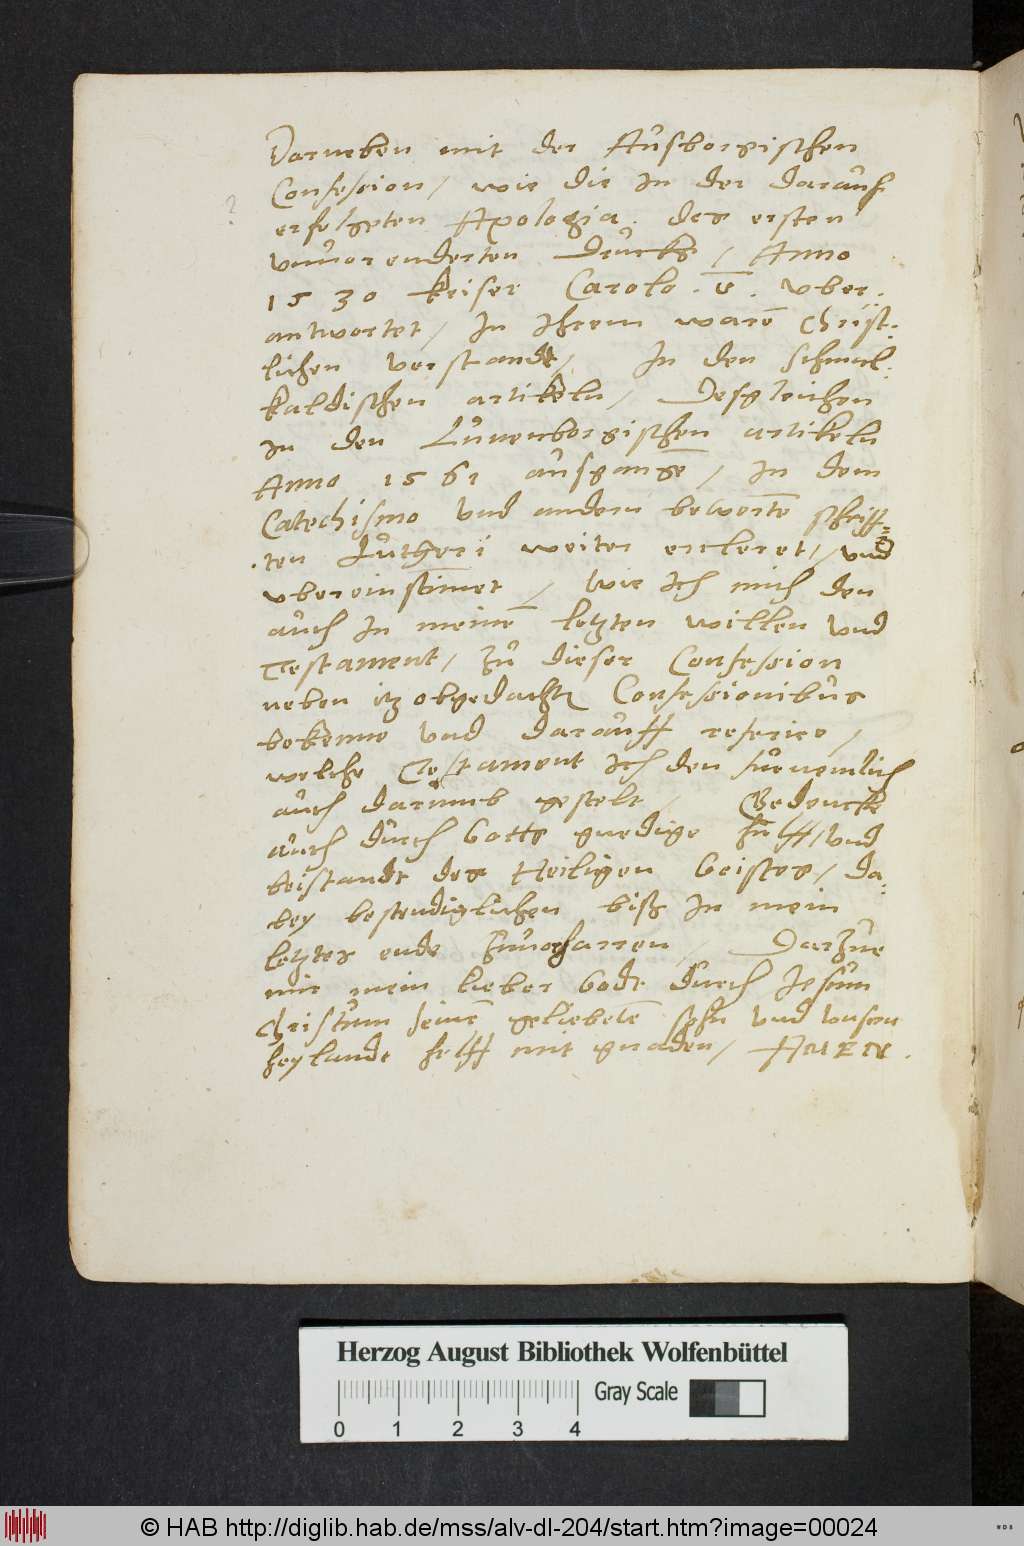 Darneben mit der Ausborgischen
Confession / wie die in der darauf
erfolgeten Apologia. des ersten
unvorenderten Drucks / Anno
1530 keiser Carolo .v̄. vber.
antwortet / In Ihrem warē Christ.
lichen verstandt / In den schmal.
kaldischen artikeln / Desgleichen
in den Lünenborgischen artikeln
Anno 1561 ausgangē / In dem
Catechismo vnd andern bewertē schriff=
.ten Lutheri weiter ercleret / vnd
vbereinstimet / Wie Ich mich den
auch In meinē letzten willen vnd
Testament / zu dieser Confession
neben itz obgedachtē Confessionibus
bekenne vnd darauff referire /
welche Testament Ich den fürnemlich
auch darumb gestelt / Gedencke
auch durch Gotts gnedige hülff / vnd
beistandt des Heiligen Geistes / da.
bey bestendiglichen biß In mein
letztes ende zuuorharren / Darzue
mir mein lieber Godt durch Jesum
Christum seinē geliebetē sohn vnd vnsern
heylandt helff mit gnaden / AMEN .
?
Herzog August Bibliothek Wolfenbüttel
Gray Scale
0 1 2 3 4
© HAB http://diglib.hab.de/mss/alv-dl-204/start.htm?image=00024